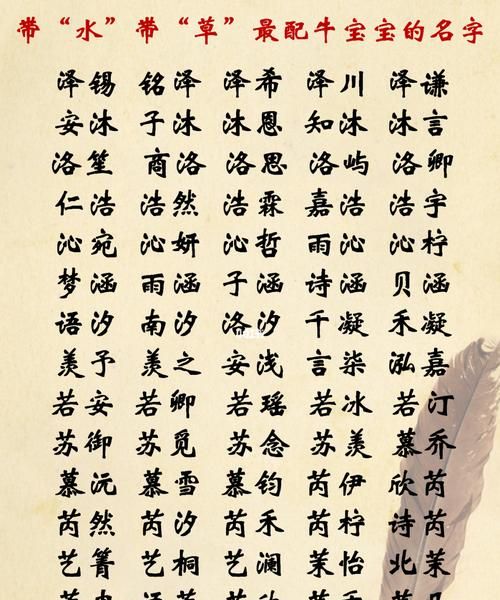 带“水”带“草”最配牛宝宝的名字
泽锡 铭泽 泽希 泽川 泽谦
安沐 子沐 沐恩 知沐 沐言
洛笙 商洛 洛思 洛屿 洛卿
仁浩 浩然 浩霖 嘉浩 浩宇
沁宛 沁妍 沁哲 雨沁 沁柠
梦涵 雨涵 子涵 诗涵 贝涵
语汐 南汐 洛汐 千凝 禾凝
羡予 羡之 安浅 言柒 泓嘉
若安 若卿 若瑶 若冰 若汀
苏御 苏觅 苏念 苏羡 慕乔
慕沅 慕雪 慕钧 芮伊 欣芮
芮然 芮汐 芮禾 芮柠 诗芮
艺箐 艺桐 艺澜 茉怡 北茉